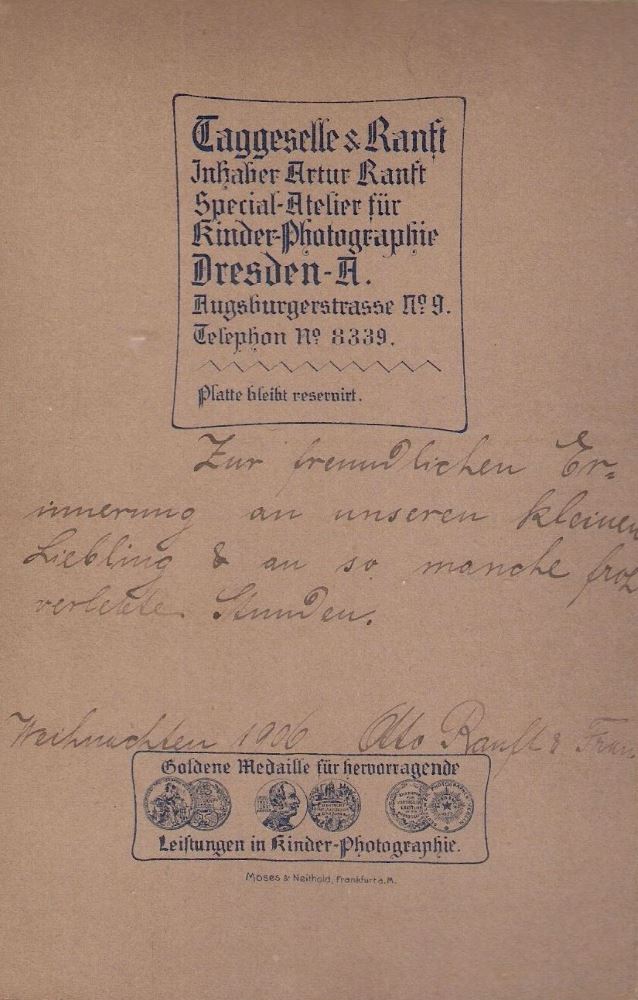 Taggeselle & Ranft
Inhaber Artur Ranft
Special-Atelier für
Kinder-Photographie
Dresden-A.
Augsburgerstrasse No 9.
Telephon No 8339.
Platte bleibt reservirt.
Zur freundlichen Er=
innerung an unseren kleinen
Liebling & an so manche froh
verlebte Stunden.
Weihnachten 1906 Otto Ranft & Frau
Goldene Medaille für hervorragende
Leistungen in Kinder-Photographie.
Moses & Neithold, Frankfurt a. M.